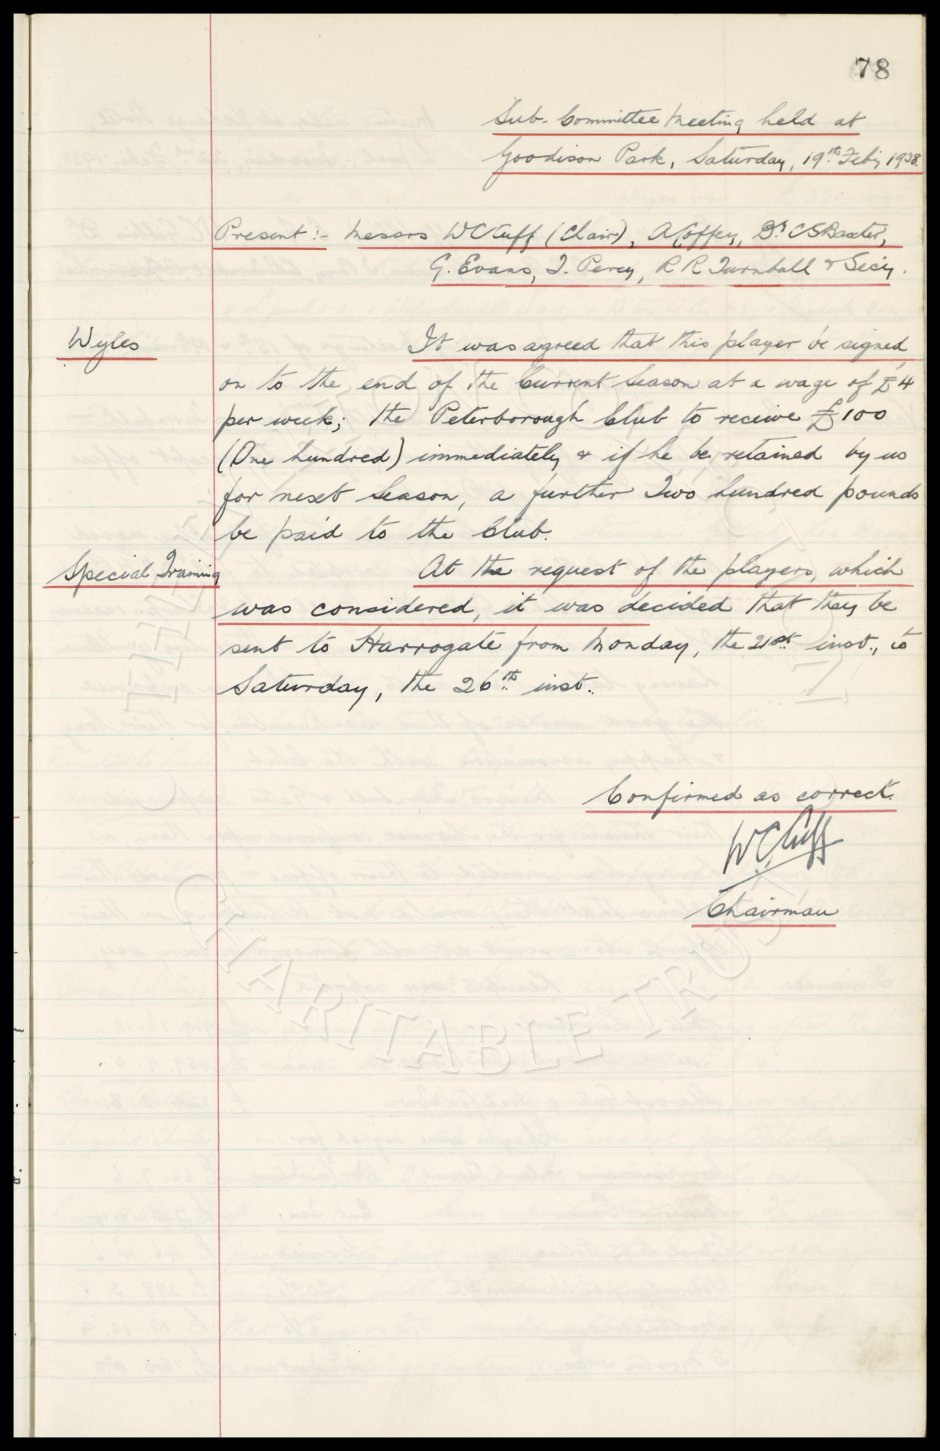 78
Sub-Committee Meeting held at
Goodison Park, Saturday, 19th Feb'y 1938.
Present:- Messrs W C Cuff (Chair), A Coffey, Dr. C S Baxter,
G. Evans, T. Percy, R R Turnbull & Sec'y.
Wyles
It was agreed that this player be signed
on to the end of the Current Season at a wage of £4
per week; the Peterborough Club to receive £100
(One hundred) immediately & if he be retained by us
for next Season, a further Two hundred pounds
be paid to the Club.
Special Training
At the request of the players, which
was considered, it was decided that they be
sent to Harrogate from Monday, the 21st inst., to
Saturday, the 26th inst.
Confirmed as correct.
W C Cuff
Chairman
CHARITABLE TRUST